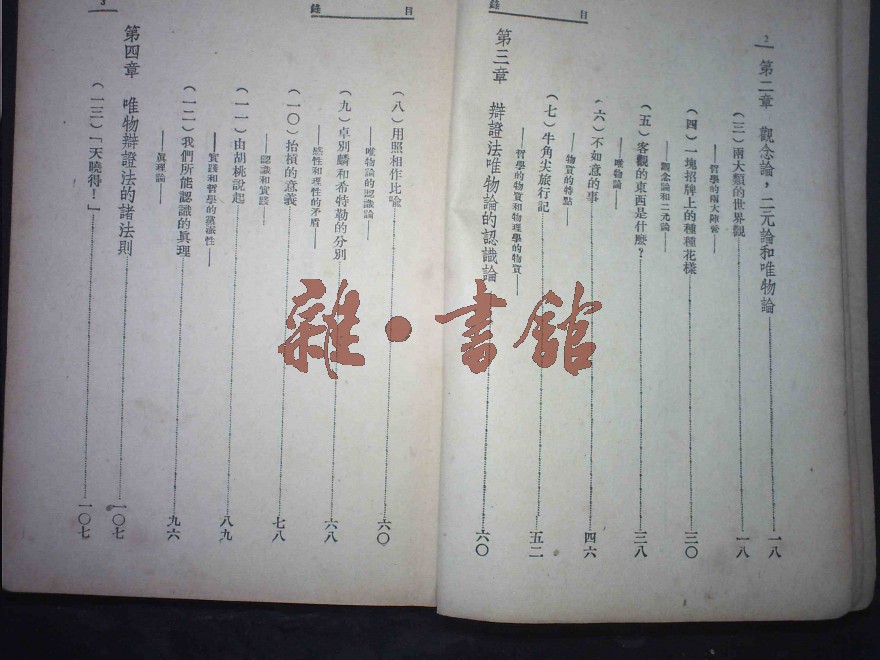 2
目錄
第二章　觀念論，二元論和唯物論……一八
（三）兩大類的世界觀……一八
——哲學的兩大陣營——
（四）一塊招牌上的種種花樣……三〇
——觀念論和二元論——
（五）客觀的東西是什麼？……三八
——唯物論——
（六）不如意的事……四六
——物質的特點——
（七）牛角尖旅行記……五二
——哲學的物質和物理學的物質——
第三章　辯證法唯物論的認識論……六〇
目錄
3
（八）用照相作比喩……六〇
——唯物論的認識論——
（九）卓別麟和希特勒的分別……六八
——感性和理性的矛盾——
（一〇）抬槓的意義……七八
——認識和實踐——
（一一）由胡桃說起……八九
——實踐和哲學的黨派性——
（一二）我們所能認識的眞理……九六
——眞理論——
第四章　唯物辯證法的諸法則……一〇七
（一三）「天曉得！」……一〇七
雜·書館